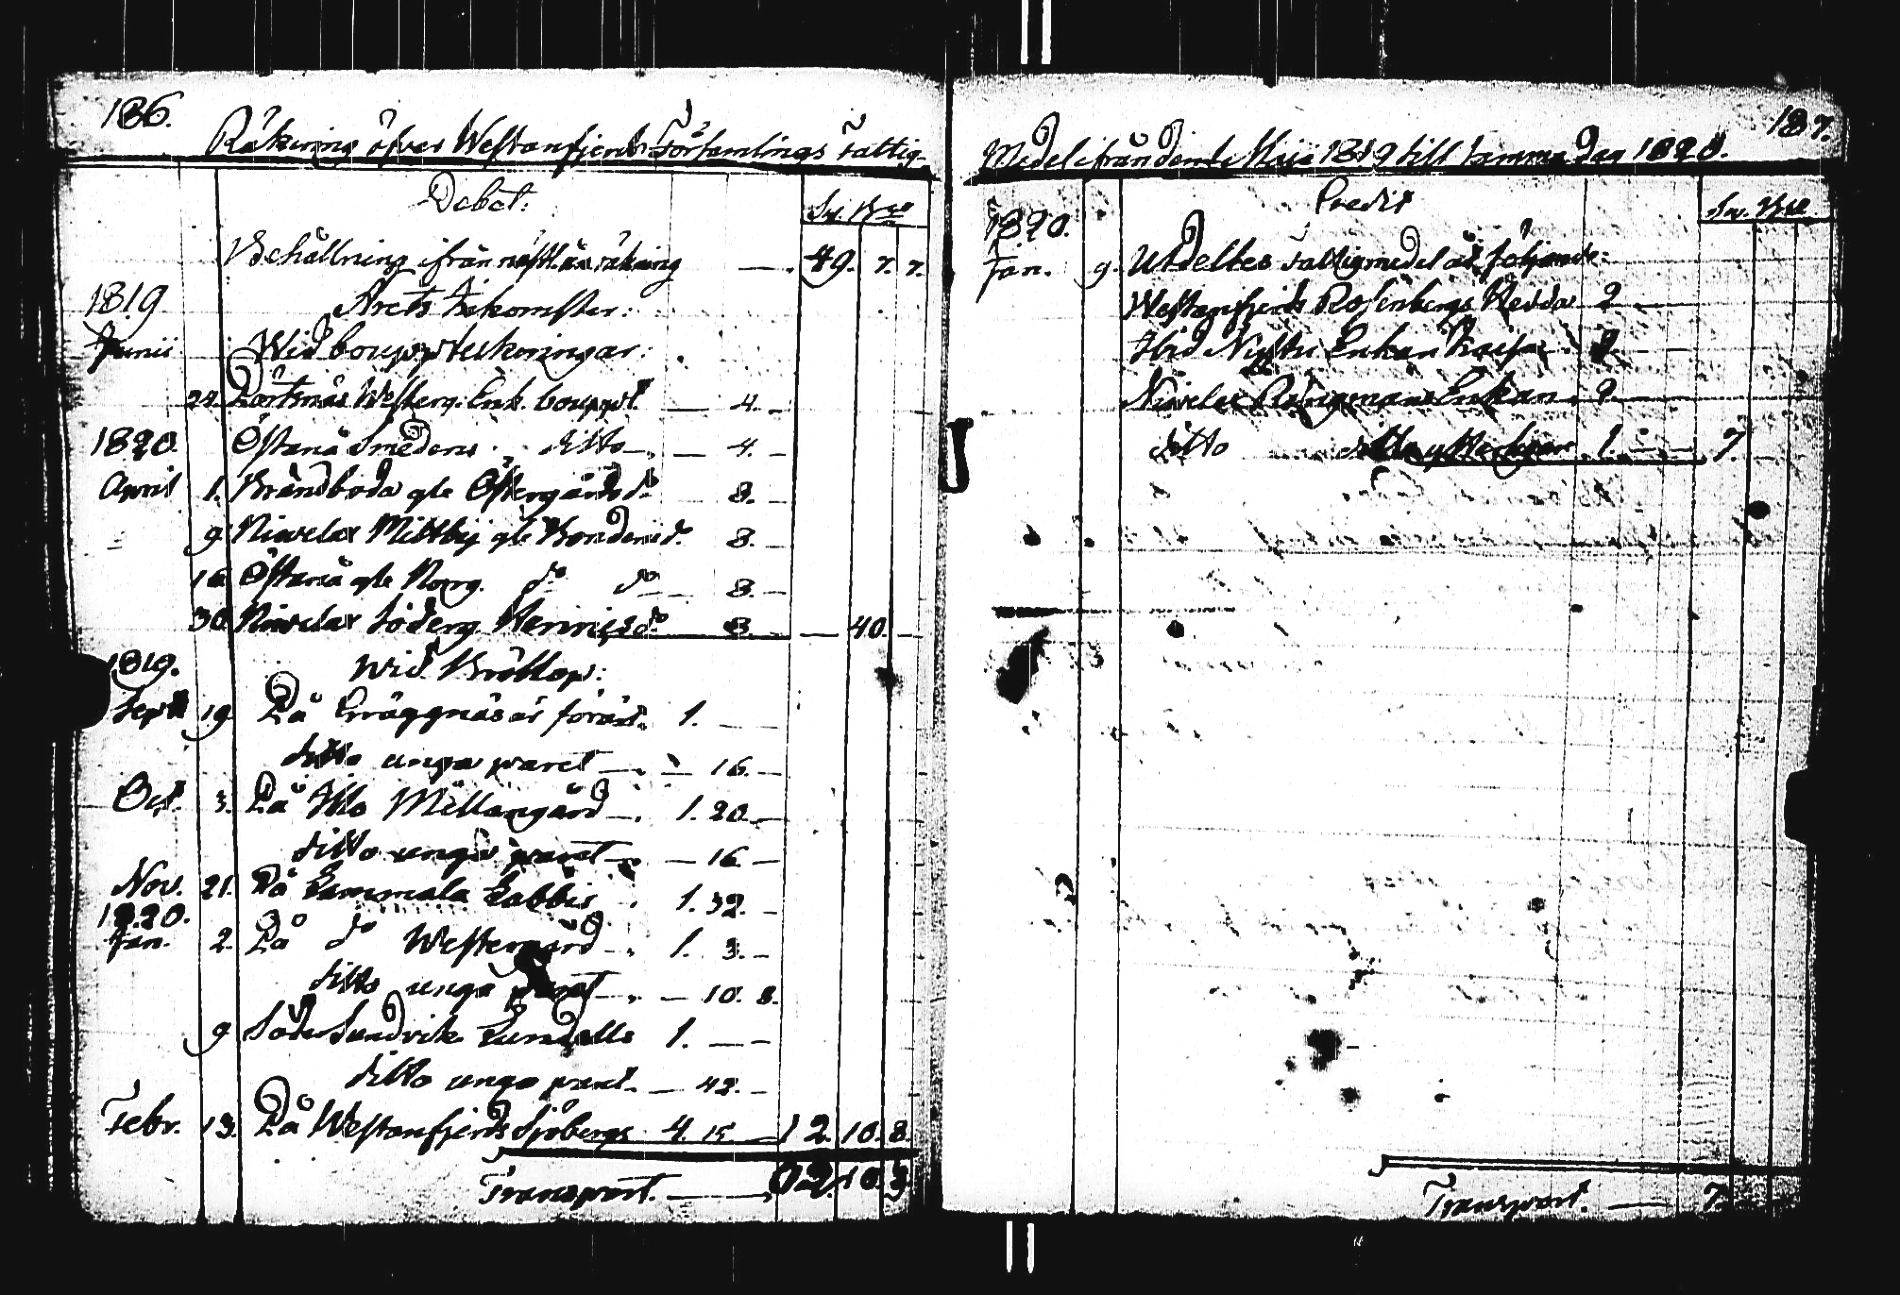 186.
Räkning öfver Westanfjerds Församlings Fattig-
Debet:
Behållning ifrån nästl. års räkning — 49. 7. 7.
1819
Årets Inkomster:
Junii Wid bouppteckningar:
24. Westerg. Enk. bouppt. — 4. —
1820. Östanå Smedens ditto — 4. —
April 1. Brändboda gle Östergårds do — 8. —
9. Nivelax Mittby gle Bondens do. 8. —
16. Östanå gle Norrg. do do — 8. —
30. Nivelax Söderg. do 8. — — 40. —
1819. Wid Bröllop:
Sept. 19. På föräd. 1. — —
ditto unga paret — 16. —
Oct. 3. På Illo Mellangård — 1. 20. —
ditto unga paret — 16 —
Nov. 21. På Lammala Labbis 1. 32. —
1820.
Jan. 2. På do Westergård 1. 3. —
ditto unga paret — 10. 8.
9. Söder Sundvik 1. — —
ditto unga paret — 42. —
Febr. 13. På Westanfjerds Sjöbergs 4. 15 — 12. 10. 8.
Transport. — 10.
187.
Medel ifrån den 1 Maji 1819 till samma Dag 1820.
Credit
1820.
Jan. 9. Utdeltes fattigmedel åt följande:
Westanfjerds Rosenbergs Hedda 2 —
Ibid Enkan 2 —
Nivelax Enkan 2. —
ditto ditto ytterligare 1. — — 7.
Transport. — 7.